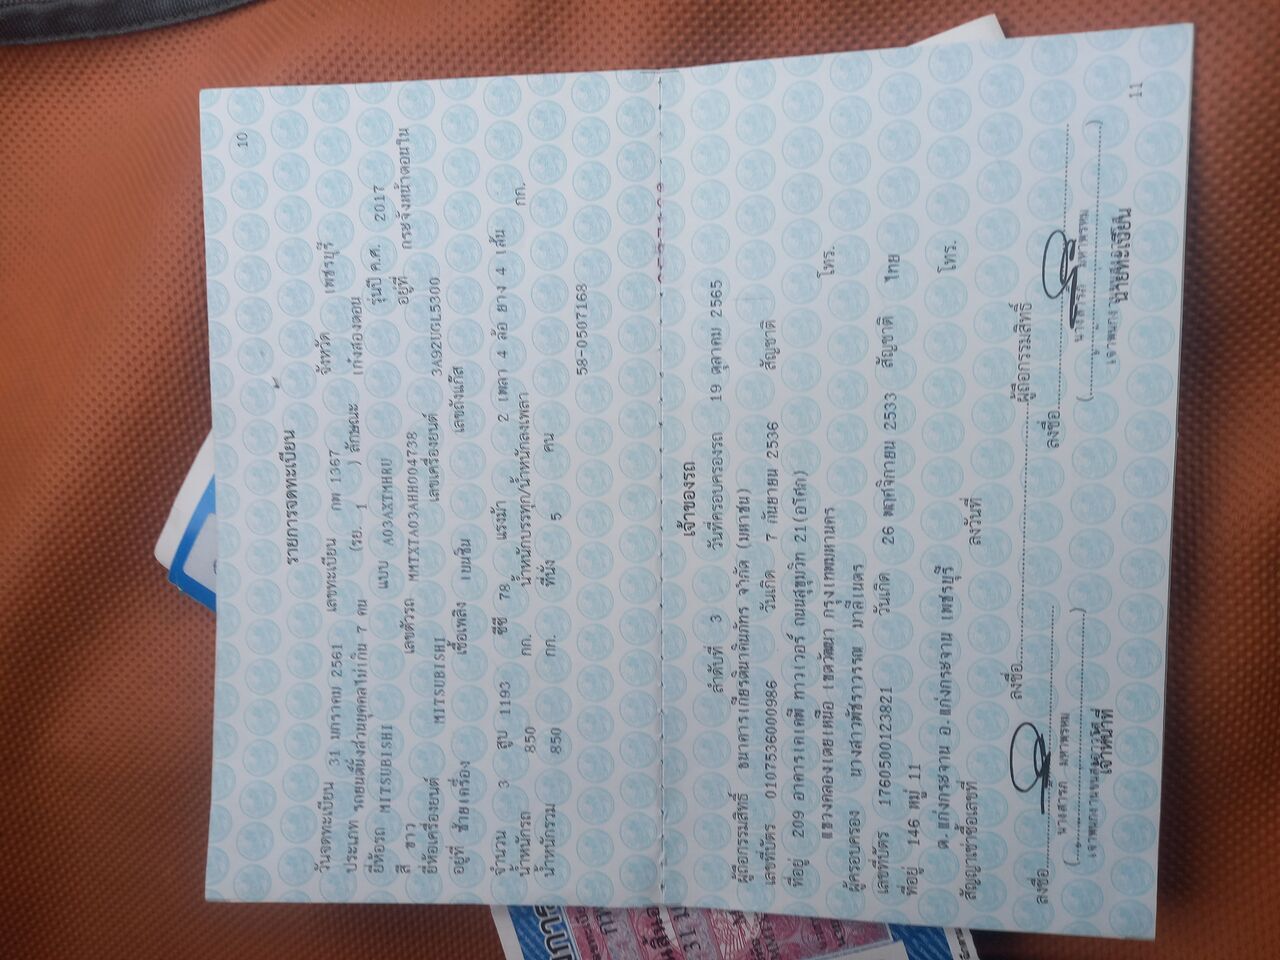 10
รายการจดทะเบียน
วันจดทะเบียน 31 มกราคม 2561 เลขทะเบียน กท 1367 จังหวัด เพชรบุรี
ประเภท รถยนต์นั่งส่วนบุคคลไม่เกิน 7 คน (รย. 1 ) ลักษณะ เก๋งสองตอน
ยี่ห้อรถ MITSUBISHI แบบ A03AXTMHRU รุ่นปี ค.ศ. 2017
สี ขาว เลขตัวรถ MMTXTA03AHH004738 อยู่ที่ กระจังหน้าตอนใน
ยี่ห้อเครื่องยนต์ MITSUBISHI เลขเครื่องยนต์ 3A92UGL5300
อยู่ที่ ซ้ายเครื่อง เชื้อเพลิง เบนซิน เลขถังแก๊ส
จำนวน 3 สูบ 1193 ซีซี 78 แรงม้า 2 เพลา 4 ล้อ ยาง 4 เส้น
น้ำหนักรถ 850 กก. น้ำหนักบรรทุก/น้ำหนักลงเพลา กก.
น้ำหนักรวม 850 กก. ที่นั่ง 5 คน
58-0507168
เจ้าของรถ
ลำดับที่ 3 วันที่ครอบครองรถ 19 ตุลาคม 2565
ผู้ถือกรรมสิทธิ์ ธนาคารเกียรตินาคินภัทร จำกัด (มหาชน)
เลขที่บัตร 0107536000986 วันเกิด 7 กันยายน 2536 สัญชาติ
ที่อยู่ 209 อาคารเคเคพี ทาวเวอร์ ถนนสุขุมวิท 21(อโศก)
แขวงคลองเตยเหนือ เขตวัฒนา กรุงเทพมหานคร โทร.
ผู้ครอบครอง นางสาวพัชราวรรณ มาลีเนตร
เลขที่บัตร 1760500123821 วันเกิด 26 พฤศจิกายน 2533 สัญชาติ ไทย
ที่อยู่ 146 หมู่ 11
ต.แก่งกระจาน อ.แก่งกระจาน เพชรบุรี โทร.
สัญญาเช่าซื้อเลขที่ ลงวันที่
ลงชื่อ ผู้ถือกรรมสิทธิ์
ลงชื่อ ลงชื่อ
(นางสารภี มหาพรหม) (นางสารภี มหาพรหม)
เจ้าหน้าที่ นายทะเบียน
11